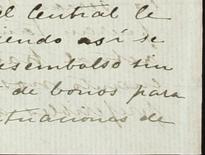 el Central le
iendo así se
esembolso sin
de bonos para
tuaciones de